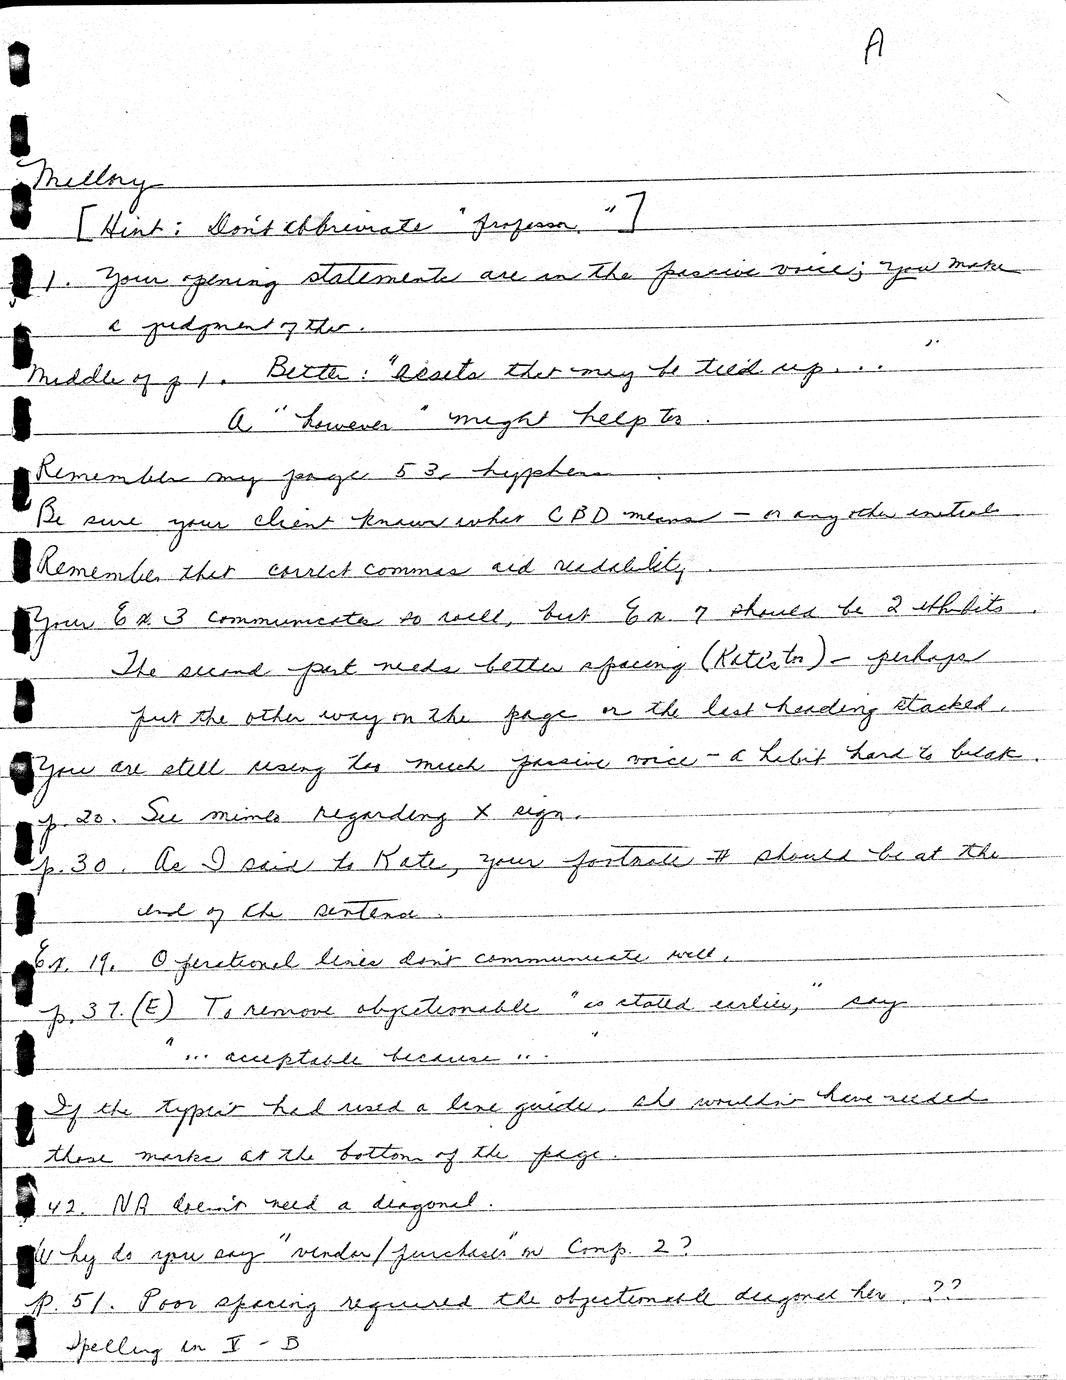 A
Mellory
[Hint: Don't abbreviate "professor."]
1. Your opening statements are in the passive voice; you make
a judgment of this.
Middle of p 1. Better: "assets that may be tied up...."
A "however" might help too.
Remember my page 53, hyphens.
Be sure your client knows what CBD means – or any other initials
Remember that correct commas aid readability.
Your Ex 3 communicates so well, but Ex. 7 should be 2 exhibits.
The second part needs better spacing (Kate's too) – perhaps
put the other way on the page or the last heading stacked.
You are still using too much passive voice – a habit hard to break.
p. 20. See mine regarding X sign.
p. 30. As I said to Kate, your footnote # should be at the
end of the sentence.
Ex. 19. Operational lines don't communicate well.
p. 37. (E) To remove objectionable "as stated earlier," say
"... acceptable because ..."
If the typist had used a line guide, she wouldn't have needed
those marks at the bottom of the page.
42. NA doesn't need a diagonal.
Why do you say "vendor/purchaser" in Comp. 2?
p. 51. Poor spacing required the objectionable diagonal here. ??
Spelling in V - B